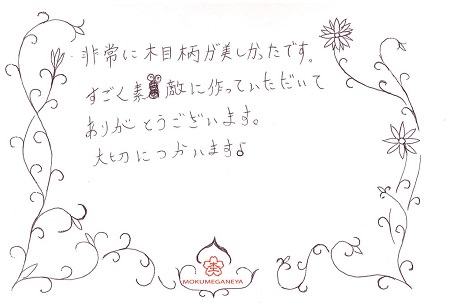 非常に木目柄が美しかったです。
すごく素敵に作っていただいて
ありがとうございます。
大切につかいます♪
MOKUMEGANEYA